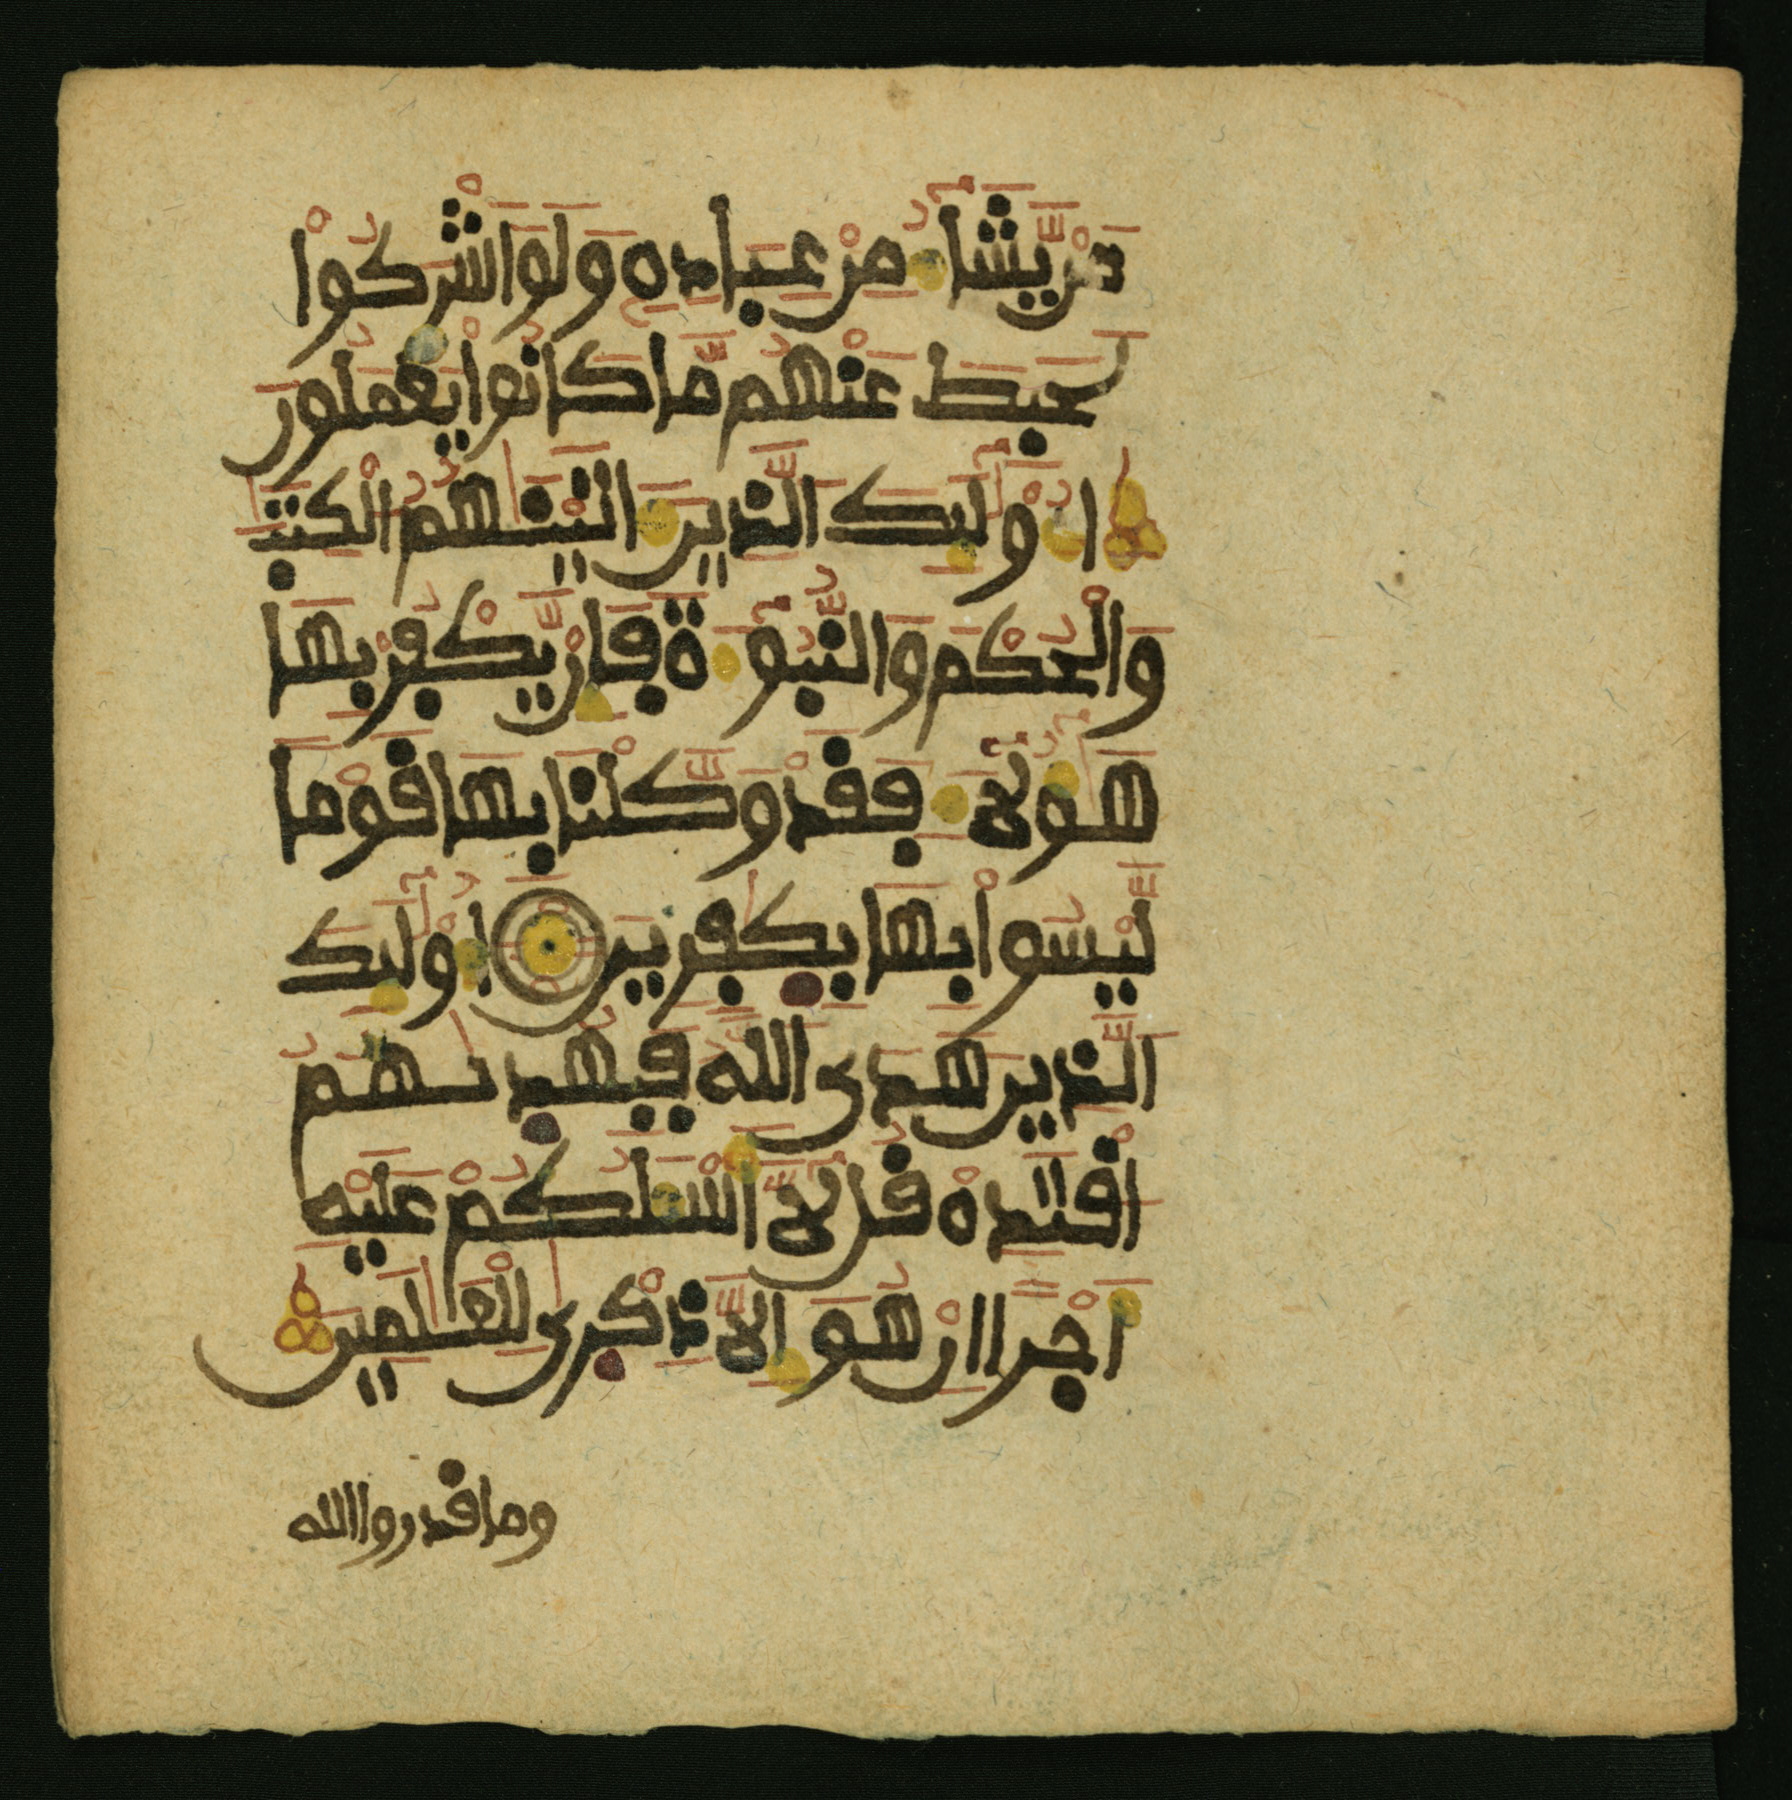 مَنْ يَّشَآءُ مِنْ عِبَادِهِۦ وَلَوَ اَشْرَكُواْ
لَحَبِطَ عَنْهُم مَّا كَانُواْ يَعْمَلُونَ
أُوْلَٰٓئِكَ اَلَّذِينَ ءَاتَيْنَٰهُمُ اُلْكِتَٰبَ
وَالْحُكْمَ وَالنُّبُوٓءَةَ فَإِنْ يَّكْفُرْ بِهَا
هَٰٓؤُلَآءِ فَقَدْ وَكَّلْنَا بِهَا قَوْماً
لَّيْسُواْ بِهَا بِكَٰفِرِينَ أُوْلَٰٓئِكَ
اَلَّذِينَ هَدَى اَللَّهُ فَبِهُدَىٰهُمُ
اُقْتَدِهْ قُل لَّآ أَسْـَٔلُكُمْ عَلَيْهِ
أَجْراً اِنْ هُوَ إِلَّا ذِكْرَىٰ لِلْعَٰلَمِينَ
وما قدروا الله